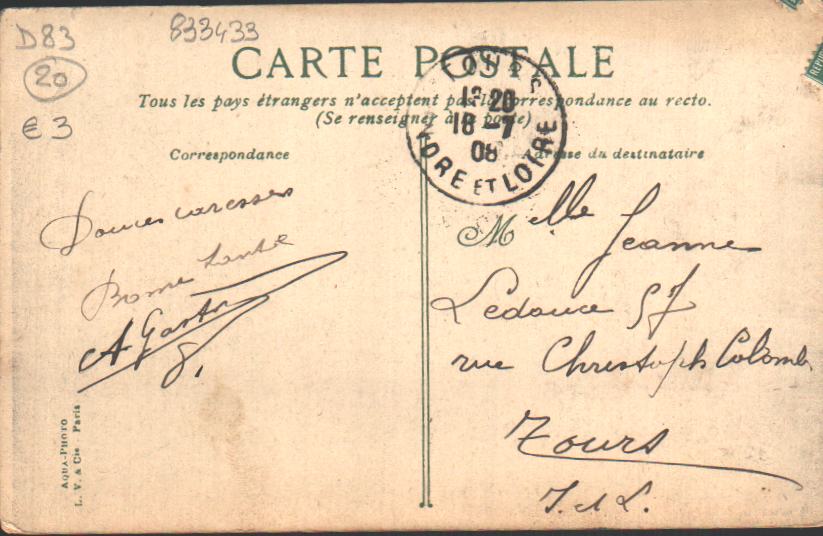 D83
833433
20
€ 3
CARTE POSTALE
Tous les pays étrangers n'acceptent pas la correspondance au recto.
(Se renseigner à la poste)
TOURS
12 20
18 -7
08
INDRE ET LOIRE
Correspondance
Adresse du destinataire
Douces caresses
Bonne Santé
A Gaston
Melle Jeanne
Ledouce 57
rue Christoph Colomb
Tours
I. et L.
AQUA-PHOTO
L. V. & Cie Paris